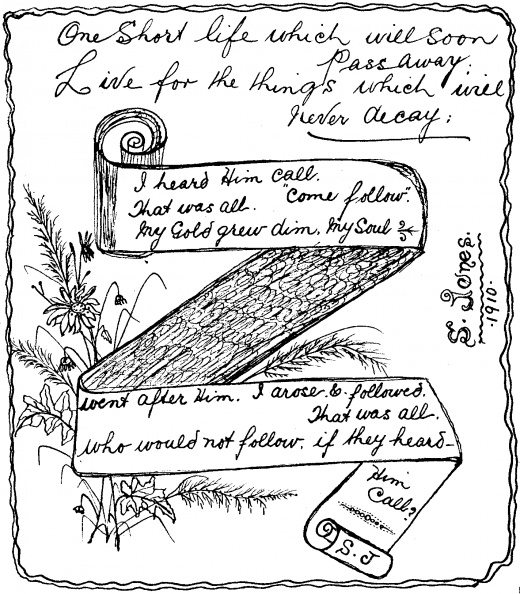 One Short life which will soon
Pass away.
Live for the things which will
never decay:
I heard Him call.
"Come follow".
That was all.
My Gold grew dim. My Soul
went after Him. I arose & followed.
That was all.
who would not follow. if they heard
Him
Call?
S. J
S. Jones.
1910.